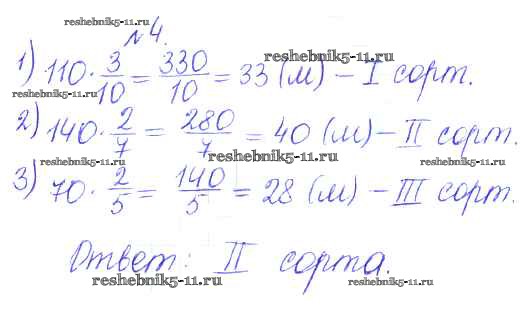 №4.
reshebnik5-11.ru
1) 110 · 3/10 = 330/10 = 33 (м) – I сорт.
reshebnik5-11.ru
reshebnik5-11.ru
2) 140 · 2/7 = 280/7 = 40 (м) – II сорт.
reshebnik5-11.ru
reshebnik5-11.ru
3) 70 · 2/5 = 140/5 = 28 (м) – III сорт.
reshebnik5-11.ru
Ответ: II сорта.
reshebnik5-11.ru
reshebnik5-11.ru